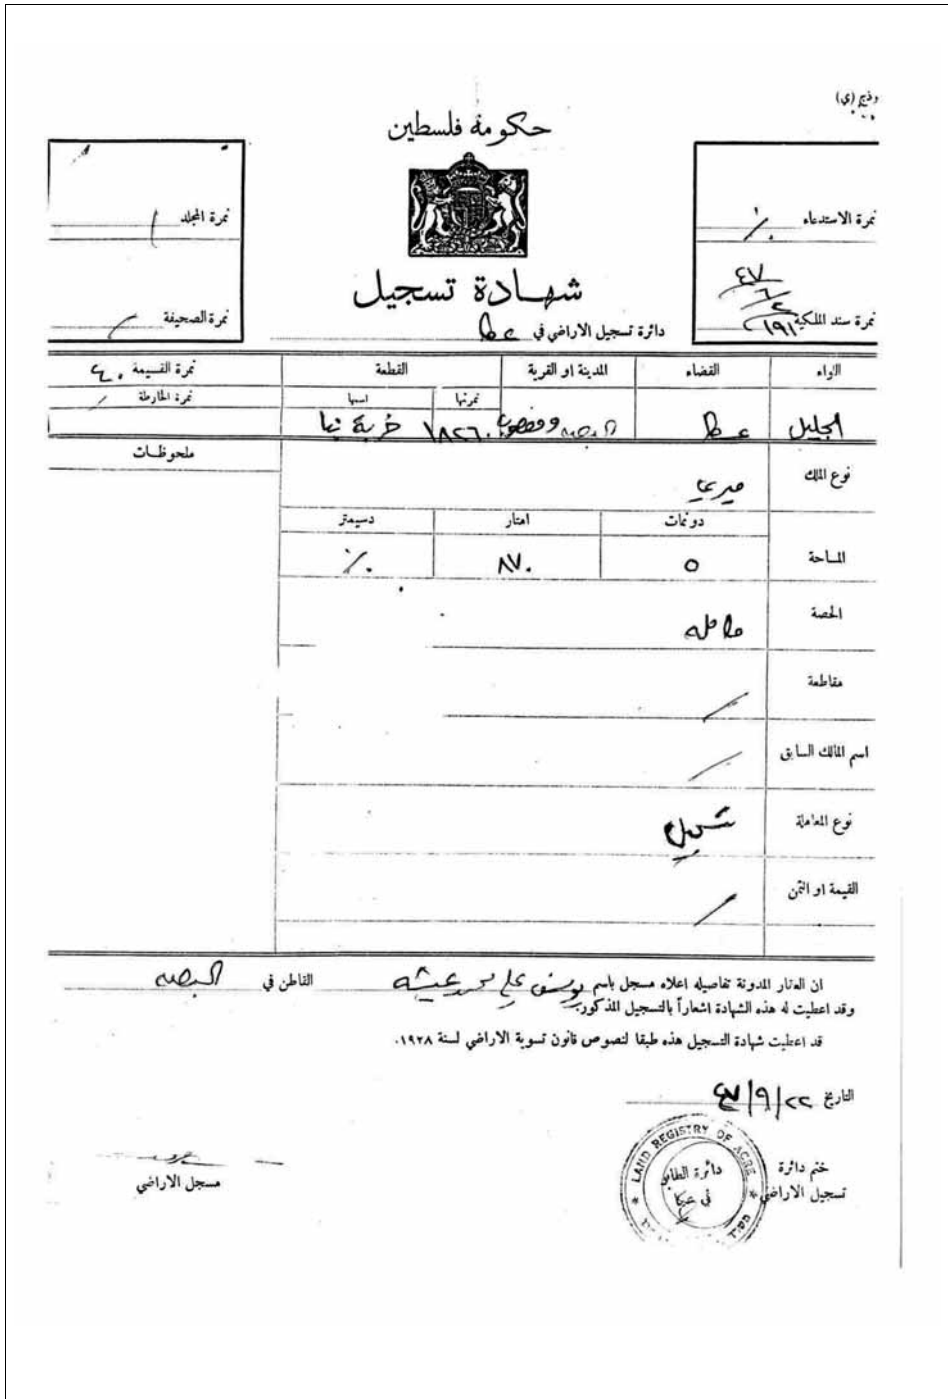 وذج (ي)
حكومة فلسطين
نمرة الاستدعاء ٪
نمرة المجلد /
شهادة تسجيل
نمرة سند الملكية ٤٧/٦/٢/١٩١
نمرة الصحيفة /
دائرة تسجيل الاراضي في عكا
اللواء القضاء المدينة او القرية القطعة نمرة القسيمة ٤٠
نمرتها اسمها نمرة الخارطة /
الجليل عكا البصه ١٨٢٦٠ خربة
ملحوظات
نوع الملك ميري
دونمات امتار دسيمتر
المساحة ٥ ٨٧٠ ٪
الحصة كامله
مقاطعة /
اسم المالك السابق /
نوع المعاملة تسجيل
القيمة او الثمن /
ان العقار المدونة تفاصيله اعلاه مسجل باسم يوسف علي محمد عيشه القاطن في البصه
وقد اعطيت له هذه الشهادة اشعاراً بالتسجيل المذكور.
قد اعطيت شهادة التسجيل هذه طبقا لنصوص قانون تسوية الاراضي لسنة ١٩٢٨.
التاريخ ٢٢/٩/٤٧
LAND REGISTRY OF ACRE
دائرة الطابو
في عكا
ختم دائرة
تسجيل الاراضي
مسجل الاراضي